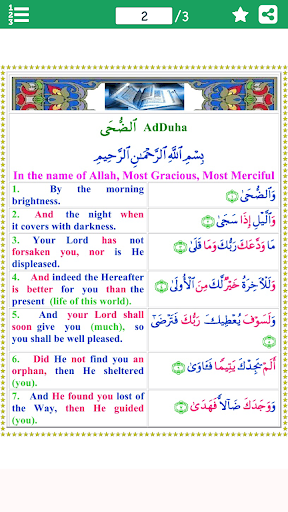 1
2
3
2 /3
ٱلضُّحَى AdDuha
بِسْمِ ٱللَّهِ ٱلرَّحْمَٰنِ ٱلرَّحِيمِ
In the name of Allah, Most Gracious, Most Merciful
1. By the morning
brightness.
وَٱلضُّحَىٰ
2. And the night when
it covers with darkness.
وَٱلَّيْلِ إِذَا سَجَىٰ
3. Your Lord has not
forsaken you, nor is He
displeased.
مَا وَدَّعَكَ رَبُّكَ وَمَا قَلَىٰ
4. And indeed the Hereafter
is better for you than the
present (life of this world).
وَلَلْءَاخِرَةُ خَيْرٌ لَّكَ مِنَ ٱلْأُولَىٰ
5. And your Lord shall
soon give you (much), so
you shall be well pleased.
وَلَسَوْفَ يُعْطِيكَ رَبُّكَ فَتَرْضَىٰٓ
6. Did He not find you an
orphan, then He sheltered
(you).
أَلَمْ يَجِدْكَ يَتِيمًا فَـَٔاوَىٰ
7. And He found you lost of
the Way, then He guided
(you).
وَوَجَدَكَ ضَآلًّا فَهَدَىٰ